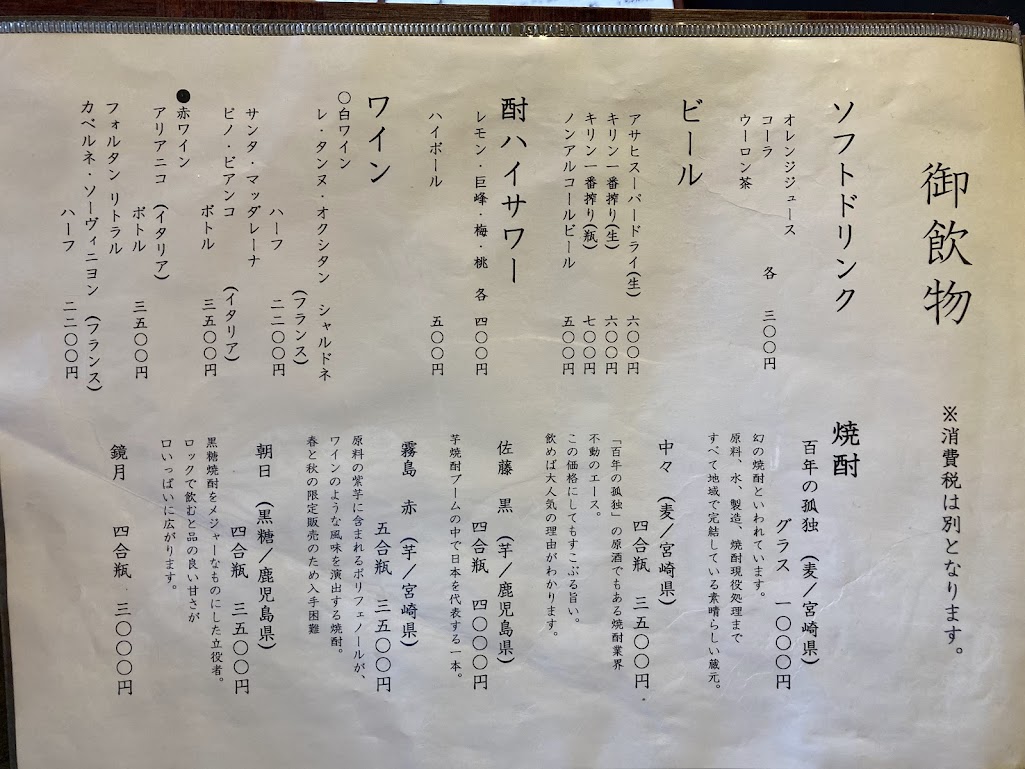 御飲物
※消費税は別となります。
ソフトドリンク
オレンジジュース
コーラ
ウーロン茶
各 三〇〇円
ビール
アサヒスーパードライ(生) 六〇〇円
キリン一番搾り(生) 六〇〇円
キリン一番搾り(瓶) 七〇〇円
ノンアルコールビール 五〇〇円
酎ハイサワー
レモン・巨峰・梅・桃 各 四〇〇円
ハイボール 五〇〇円
ワイン
○白ワイン
レ・タンヌ・オクシタン シャルドネ
(フランス)
ハーフ 二二〇〇円
サンタ・マッダレーナ
ピノ・ビアンコ (イタリア)
ボトル 三五〇〇円
●赤ワイン
アリアニコ (イタリア)
ボトル 三五〇〇円
フォルタン リトラル
カベルネ・ソーヴィニヨン (フランス)
ハーフ 二二〇〇円
焼酎
百年の孤独 (麦/宮崎県)
グラス 一〇〇〇円
幻の焼酎といわれています。
原料、水、製造、焼酎現役処理まで
すべて地域で完結している素晴らしい蔵元。
中々 (麦/宮崎県)
四合瓶 三五〇〇円
「百年の孤独」の原酒でもある焼酎業界
不動のエース。
この価格にしてもすこぶる旨い。
飲めば大人気の理由がわかります。
佐藤 黒 (芋/鹿児島県)
四合瓶 四〇〇〇円
芋焼酎ブームの中で日本を代表する一本。
霧島 赤 (芋/宮崎県)
五合瓶 三五〇〇円
原料の紫芋に含まれるポリフェノールが、
ワインのような風味を演出する焼酎。
春と秋の限定販売のため入手困難
朝日 (黒糖/鹿児島県)
四合瓶 三五〇〇円
黒糖焼酎をメジャーなものにした立役者。
ロックで飲むと品の良い甘さが
口いっぱいに広がります。
鏡月 四合瓶 三〇〇〇円